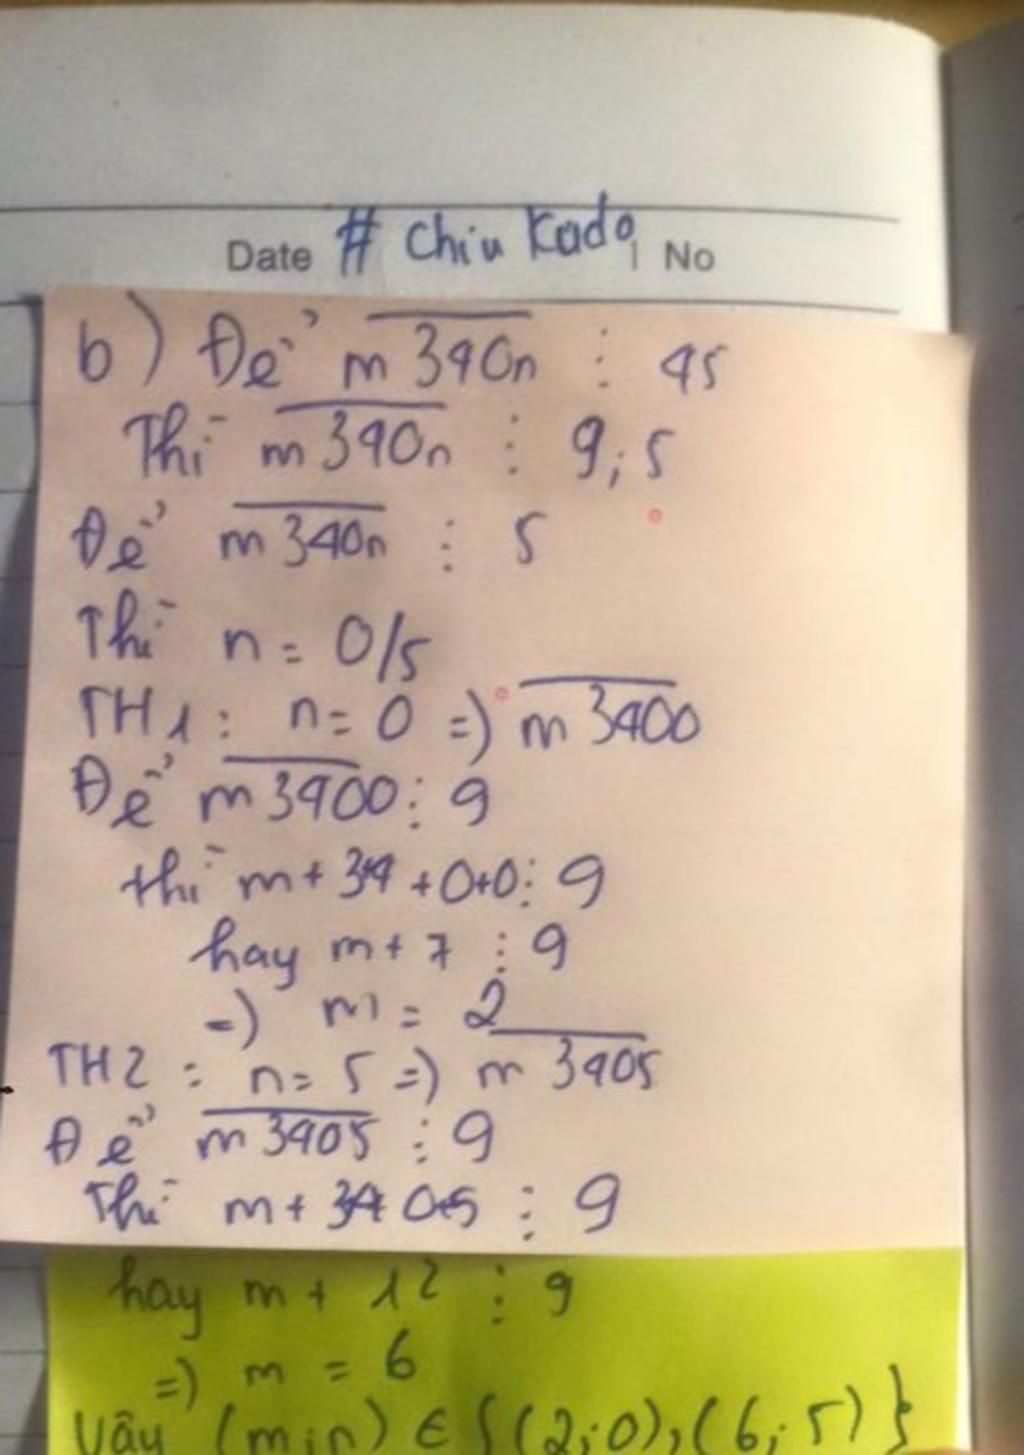 Date # Chiu Kado No
b) Để m340n ⋮ 45
Thì m340n ⋮ 9; 5
Để m340n ⋮ 5
Thì n = 0/5
TH1: n = 0 =) m3400
Để m3400 ⋮ 9
thì m + 3+4 + 0+0 ⋮ 9
hay m + 7 ⋮ 9
=) m = 2
TH2 : n = 5 =) m3405
Để m3405 ⋮ 9
Thì m + 3+4+0+5 ⋮ 9
hay m + 12 ⋮ 9
=) m = 6
Vậy (m;n) ∈ {(2;0),(6;5)}